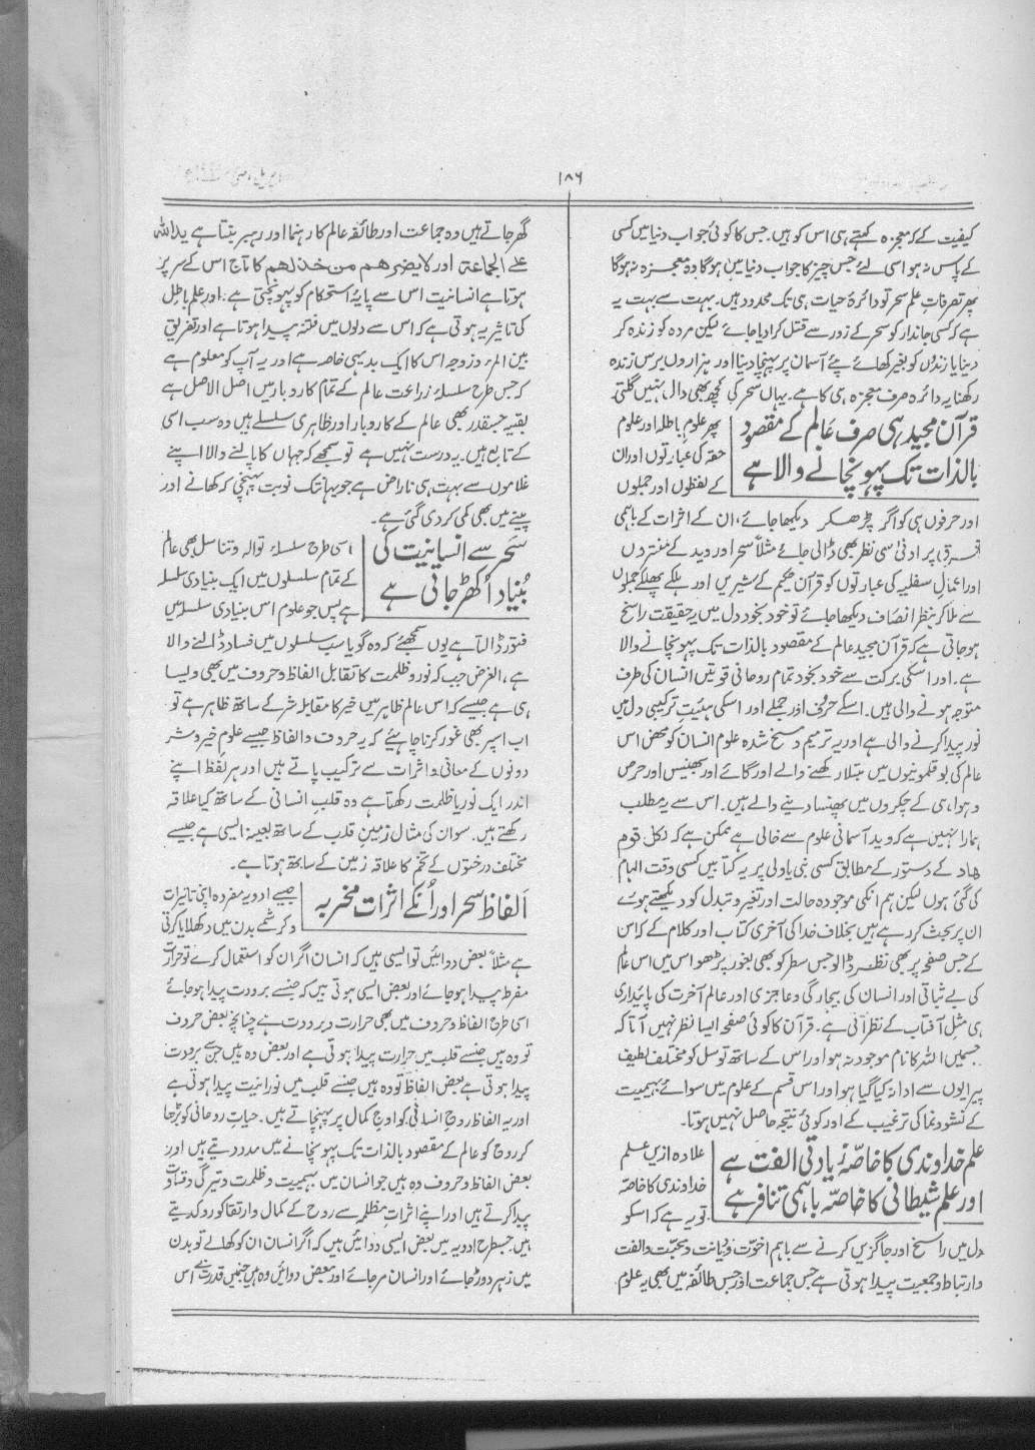 ۱۸۶
کیفیت کے کہ معجزہ کہتے ہی اس کو ہیں۔ جس کا کوئی جواب دنیا میں کسی
کے پاس نہ ہو اسی لئے جس چیز کا جواب دنیا میں ہوگا وہ معجزہ نہ ہوگا
پھر تصرفات علم سحر تو دائرۂ حیات ہی تک محدود ہیں۔ بہت سے بہت یہ
ہے کہ کسی جاندار کو سحر کے زور سے قتل کرا دیا جائے لیکن مردہ کو زندہ کر
دینا یا زندوں کو بغیر کھائے پئے آسمان پر پہنچا دینا اور ہزاروں برس زندہ
رکھنا یہ دائرہ صرف معجزہ ہی کا ہے۔ یہاں سحر کی کچھ بھی دال نہیں گلتی
قرآن مجید ہی صرف عالم کے مقصود
بالذات تک پہونچانے والا ہے
پھر علوم باطلہ اور علوم
حقہ کی عبارتوں اور ان
کے لفظوں اور جملوں
اور حرفوں ہی کو اگر پڑھکر دیکھا جائے، ان کے اثرات کے باہمی
فرق پر ادنیٰ سی نظر بھی ڈالی جائے مثلاً سحر اور وید کے منتروں
اور اعمال سفلیہ کی عبارتوں کو قرآن حکیم کے شیریں اور ہلکے پھلکے جملوں
سے ملا کر بنظر انصاف دیکھا جائے تو خود بخود دل میں یہ حقیقت راسخ
ہو جاتی ہے کہ قرآن مجید عالم کے مقصود بالذات تک پہونچانے والا
ہے۔ اور اسکی برکت سے خود بخود تمام روحانی قوتیں انسان کی طرف
متوجہ ہونے والی ہیں۔ اسکے حروف اور جملے اور اسکی ہیئت ترکیبی دل میں
نور پیدا کرنے والی ہے اور یہ ترمیم و مسخ شدہ علوم انسان کو محض اس
عالم کی بوقلمونیوں میں مبتلا رکھنے والے اور گائے اور بھینس اور حرص
و ہوا ہی کے چکروں میں پھنسا دینے والے ہیں۔ اس سے یہ مطلب
ہمارا نہیں ہے کہ وید آسمانی علوم سے خالی ہے ممکن ہے کہ لکل قوم
ھاد کے دستور کے مطابق کسی نبی یا ولی پر یہ کتابیں کسی وقت الہام
کی گئی ہوں لیکن ہم انکی موجودہ حالت اور تغیر و تبدل کو دیکھتے ہوئے
ان پر بحث کر رہے ہیں بخلاف خدا کی آخری کتاب اور کلام کے کہ اس
کے جس صفحہ پر بھی نظر ڈالو جس سطر کو بھی بغور پڑھو اس میں اس عالم
کی بے ثباتی اور انسان کی بیچارگی و عاجزی اور عالم آخرت کی پائیداری
ہی مثل آفتاب کے نظر آتی ہے۔ قرآن کا کوئی صفحہ ایسا نظر نہیں آتا کہ
جسمیں اللہ کا نام موجود نہ ہو اور اس کے ساتھ توسل کو مختلف لطیف
پیرایوں سے ادا نہ کیا گیا ہو اور اس قسم کے علوم میں سوائے بہیمیت
کے نشو و نما کی ترغیب کے اور کوئی نتیجہ حاصل نہیں ہوتا۔
علم خداوندی کا خاصہ زیادتی الفت ہے
اور علم شیطانی کا خاصہ باہمی تنافر ہے
علاوہ ازیں علم
خداوندی کا خاصہ
تو یہ ہے کہ اسکو
دل میں راسخ اور جاگزیں کرنے سے باہم اخوت و دیانت و محبت و الفت
و ارتباط و جمعیت پیدا ہوتی ہے جس جماعت اور جس طائفہ میں بھی یہ علوم
گھر جاتے ہیں وہ جماعت اور طائفہ عالم کا رہنما اور رہبر بنتا ہے ید اللہ
علے الجماعۃ اور لا یضرھم من خذلھم کا تاج اس کے سر پر
ہوتا ہے انسانیت اس سے پایۂ استحکام کو پہونچتی ہے۔ اور علم باطل
کی تاثیر یہ ہوتی ہے کہ اس سے دلوں میں فتنہ پیدا ہوتا ہے اور تفریق
بین المرء و زوجہ اس کا ایک بدیہی خاصہ ہے اور یہ آپ کو معلوم ہے
کہ جس طرح سلسلۂ زراعت عالم کے تمام کاروبار میں اصل الاصل ہے
بقیہ جسقدر بھی عالم کے کاروبار اور ظاہری سلسلے ہیں وہ سب اسی
کے تابع ہیں۔ یہ درست نہیں ہے تو سمجھے کہ جہاں کا پالنے والا اپنے
غلاموں سے بہت ہی ناراض ہے جو یہانتک نوبت پہنچی کہ کھانے اور
پینے میں بھی کمی کر دی گئی ہے۔
سحر سے انسانیت کی
بنیاد اکھڑ جاتی ہے
اسی طرح سلسلۂ توالد و تناسل بھی عالم
کے تمام سلسلوں میں ایک بنیادی سلسلہ
ہے پس جو علوم اس بنیادی سلسلہ میں
فتور ڈالتا ہے یوں سمجھئے کہ وہ گویا سب سلسلوں میں فساد ڈالنے والا
ہے، الغرض جب کہ نور و ظلمت کا تقابل الفاظ و حروف میں بھی ویسا
ہی ہے جیسے کہ اس عالم ظاہر میں خیر کا مقابلہ شر کے ساتھ ظاہر ہے تو
اب اسپر بھی غور کرنا چاہئیے کہ یہ حروف و الفاظ جیسے علوم خیر و شر
دونوں کے معانی و اثرات سے ترکیب پاتے ہیں اور ہر لفظ اپنے
اندر ایک نور یا ظلمت رکھتا ہے وہ قلب انسانی کے ساتھ کیا علاقہ
رکھتے ہیں۔ سو ان کی مثال زمین قلب کے ساتھ بعینہٖ ایسی ہے جیسے
مختلف درختوں کے تخم کا علاقہ زمین کے ساتھ ہوتا ہے۔
الفاظ سحر اور انکے اثرات مخربہ
جیسے ادویہ مفردہ اپنی تاثیرات
و کرشمے بدن میں دکھلایا کرتی
ہے مثلاً بعض دوائیں تو ایسی ہیں کہ انسان اگر ان کو استعمال کرے تو حرارت
مفرط پیدا ہو جائے اور بعض ایسی ہوتی ہیں کہ جنسے برودت پیدا ہو جائے
اسی طرح الفاظ و حروف میں بھی حرارت و برودت ہے چنانچہ بعض حروف
تو وہ ہیں جنسے قلب میں حرارت پیدا ہوتی ہے اور بعض وہ ہیں جن سے برودت
پیدا ہوتی ہے بعض الفاظ تو وہ ہیں جنسے قلب میں نورانیت پیدا ہوتی ہے
اور یہ الفاظ روح انسانی کو اوج کمال پر پہنچاتے ہیں۔ حیات روحانی کو بڑھا
کر روح کو عالم کے مقصود بالذات تک پہونچانے میں مدد دیتے ہیں اور
بعض الفاظ و حروف وہ ہیں جو انسان میں بہیمیت و ظلمت و تیرگی و قساوت
پیدا کرتے ہیں اور اپنے اثرات مظلمہ سے روح کے کمال و ارتقا کو رد کر دیتے
ہیں۔ جسطرح ادویہ میں بعض ایسی دوائیں ہیں کہ اگر انسان ان کو کھالے تو بدن
میں زہر دوڑ جائے اور انسان مر جائے اور بعض دوائیں وہ ہیں جنہیں قدرت نے اس